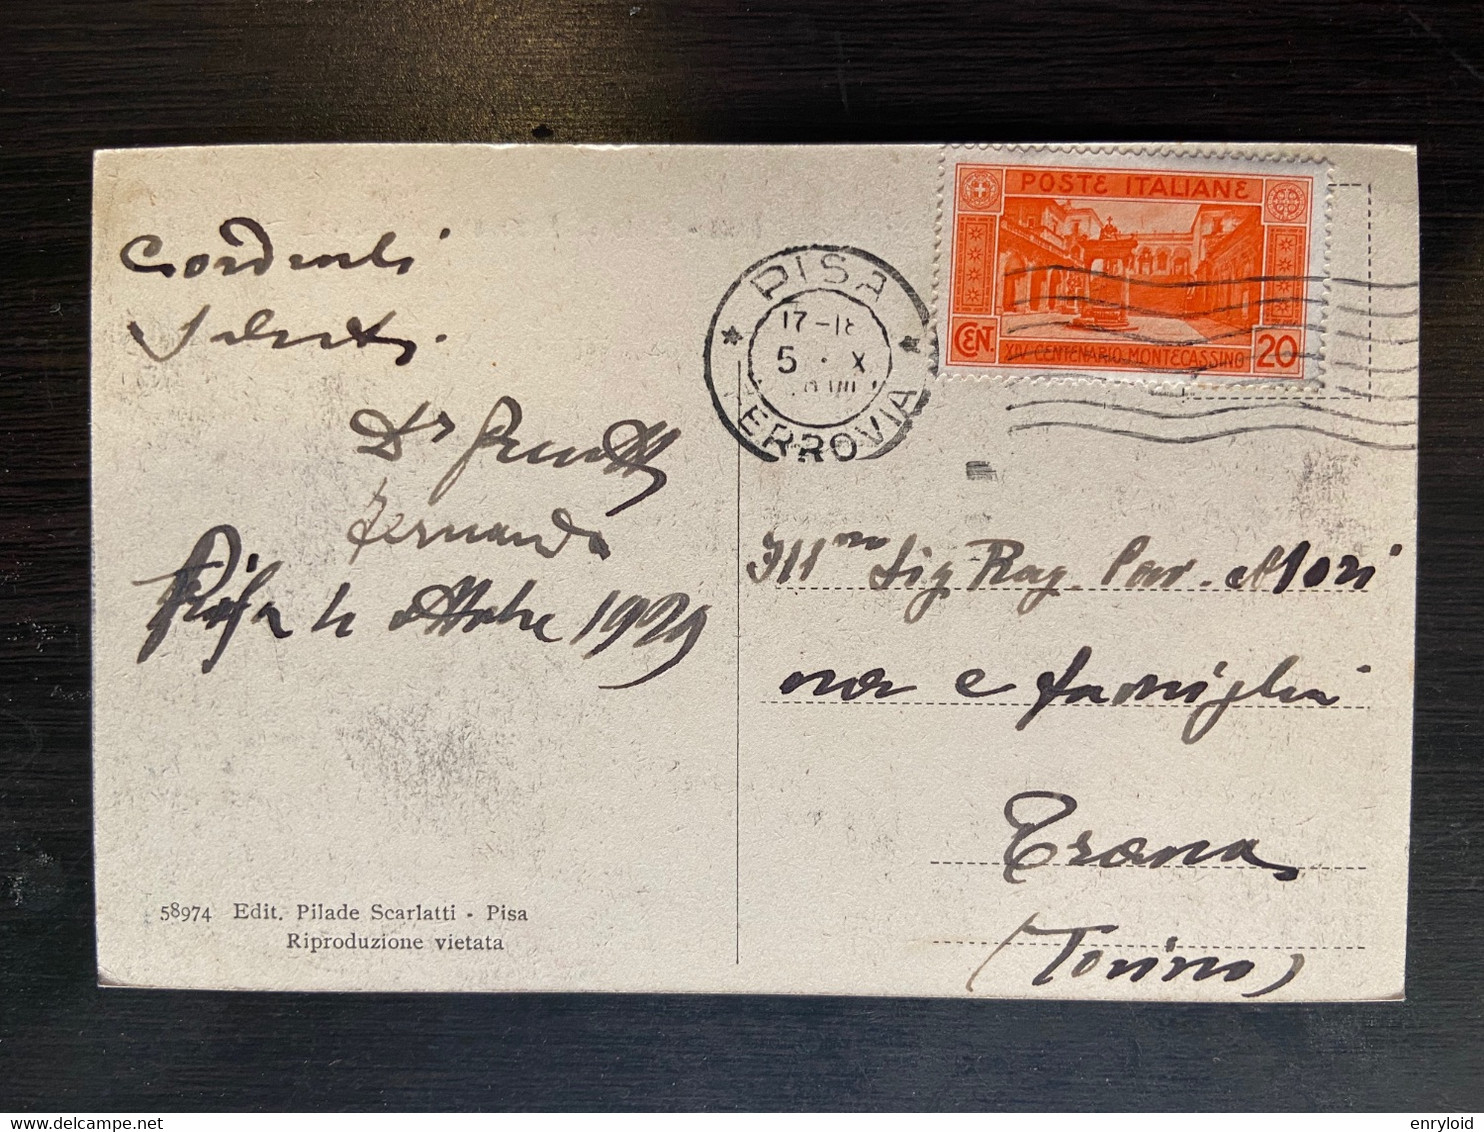 Cordiali
Saluti
Dr
Fernando
Pisa 4 ottobre 1929
58974 Edit. Pilade Scarlatti - Pisa
Riproduzione vietata
POSTE ITALIANE
CENT. 20
XIV CENTENARIO MONTECASSINO
PISA
17-18
5 X
FERROVIA
Ill mo Sig Rag. Cav. Mori
e famiglia
Trana
(Torino)
delcampe.net
enryloid